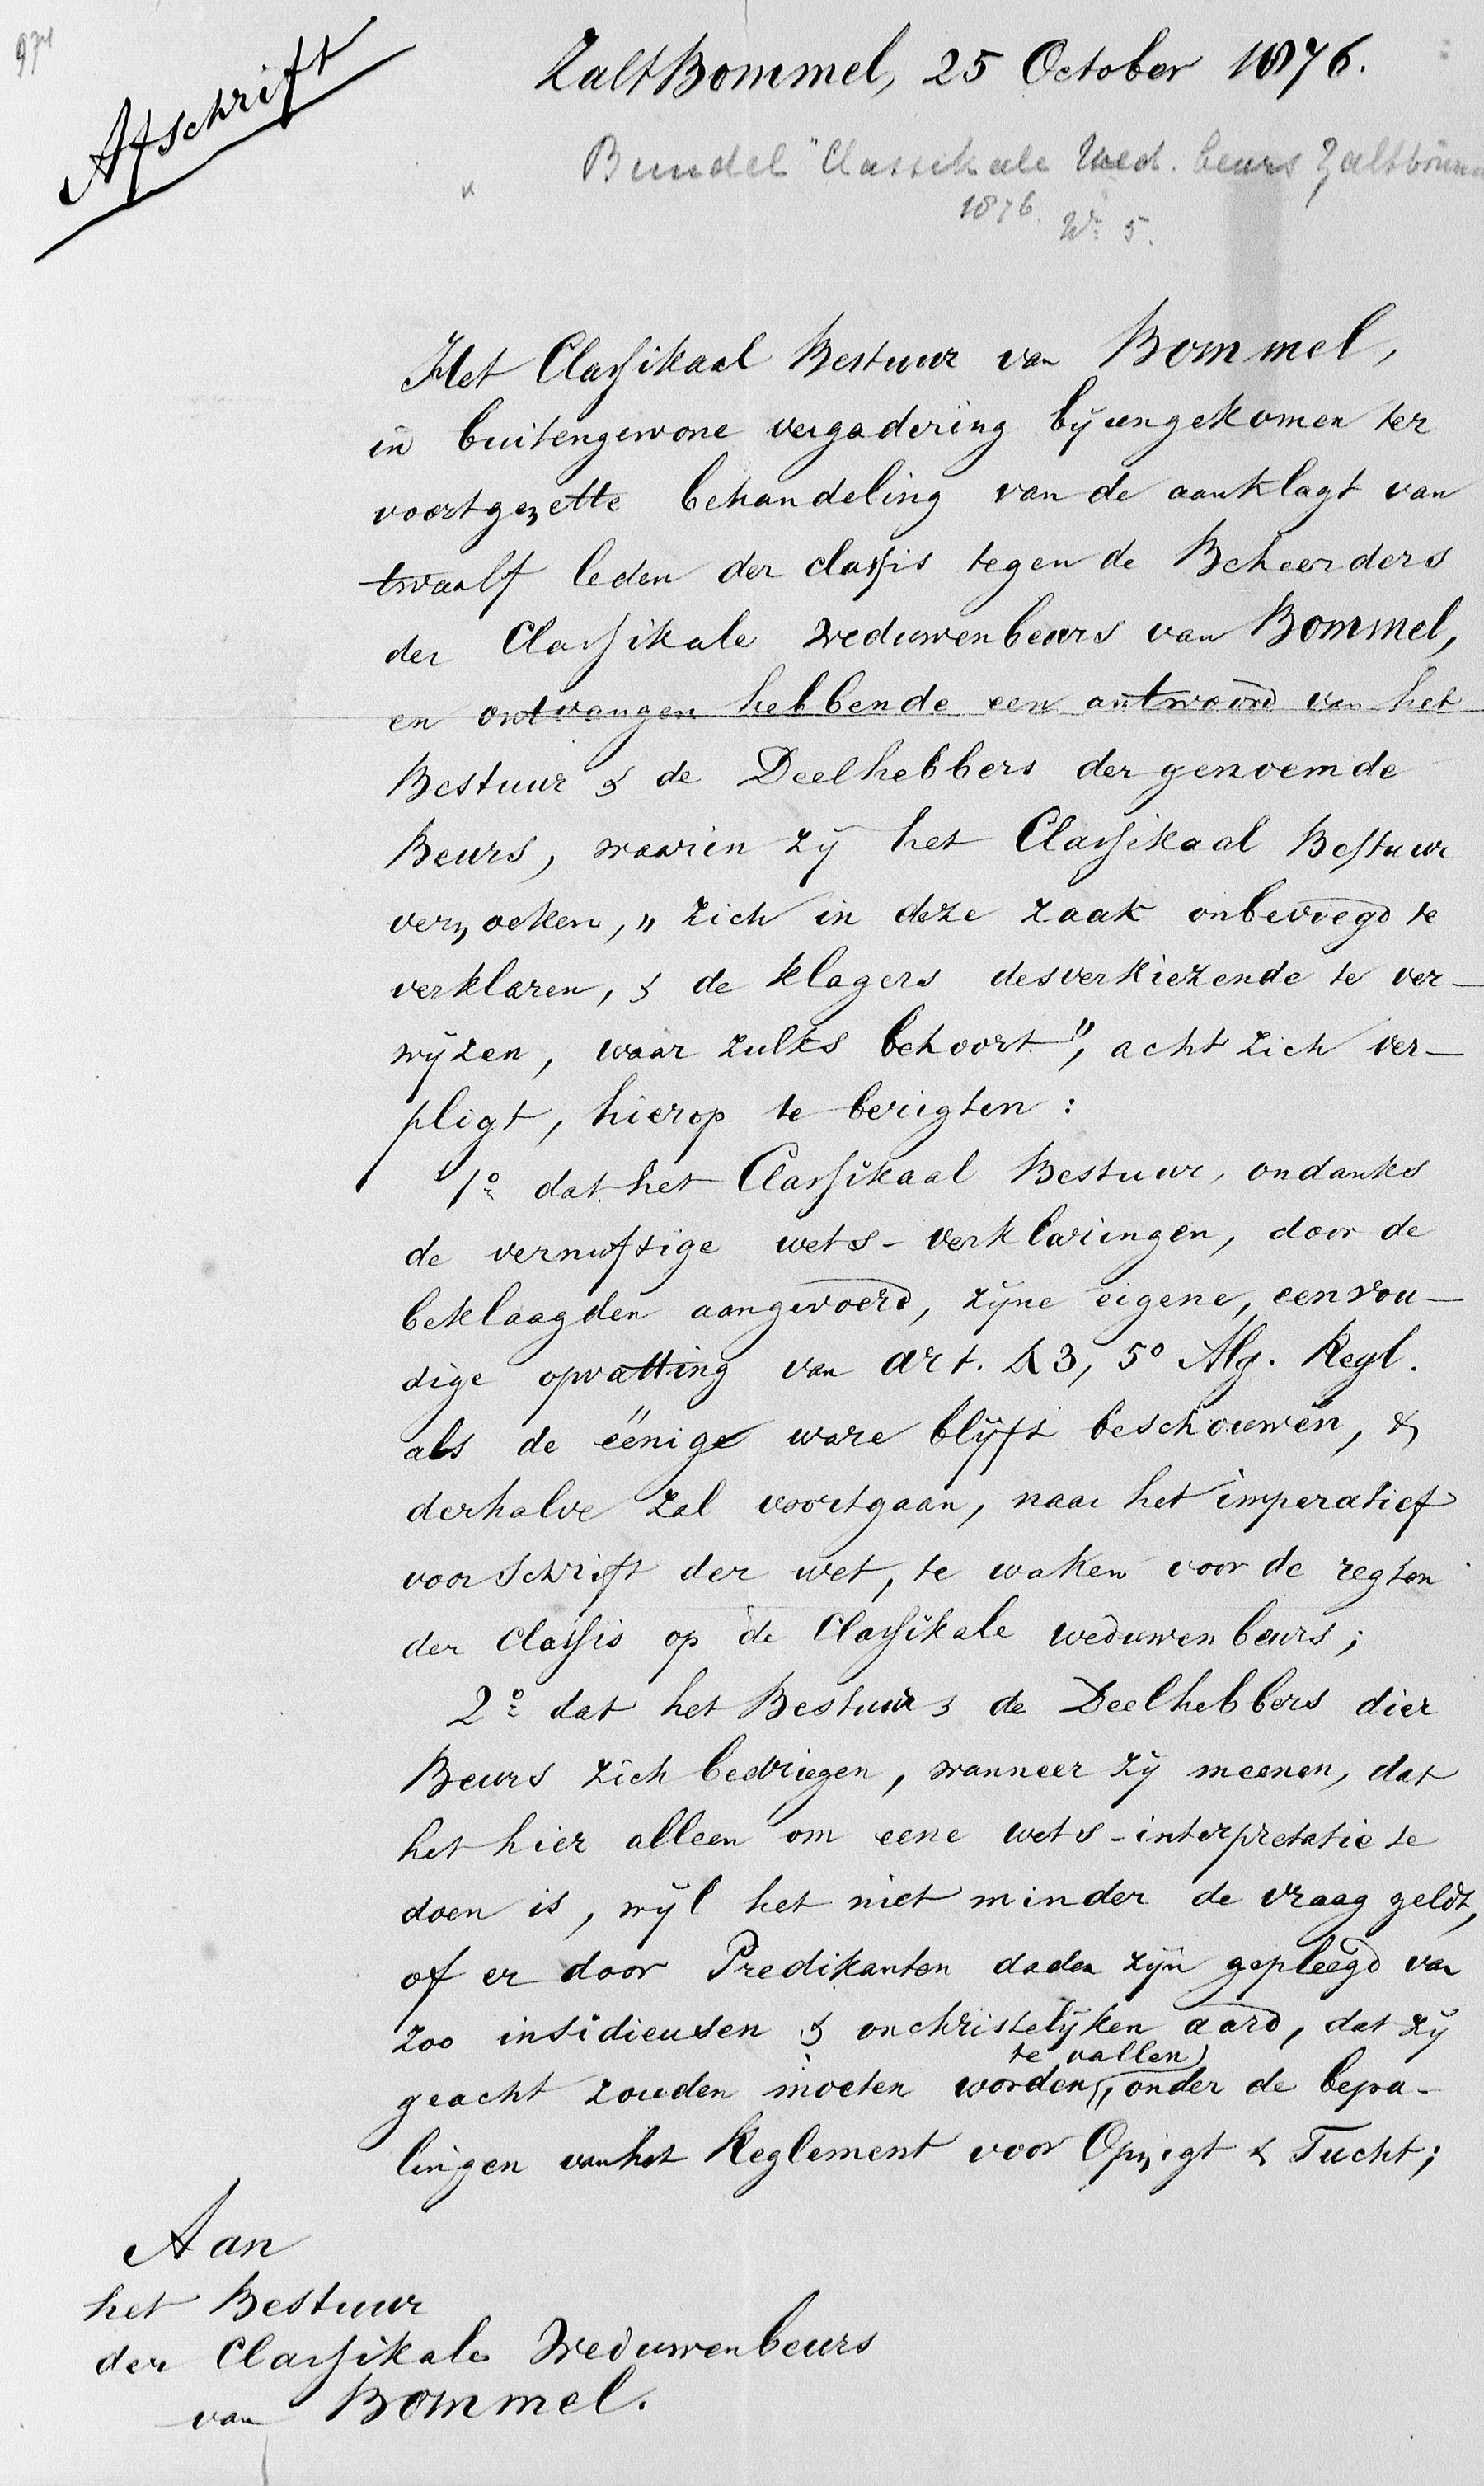 974
Afschrift
ZaltBommel, 25 October 1876.
Bundel "Classikale Wed. beurs Zaltbomm
1876. No 5.
Het Classikaal Bestuur van Bommel,
in buitengewone vergadering bijeengekomen ter
voortgezette behandeling van de aanklagt van
twaalf leden der classis tegen de Beheerders
der Classikale Weduwenbeurs van Bommel,
en ontvangen hebbende een antwoord van het
Bestuur & de Deelhebbers der genoemde
Beurs, waarin zij het Classikaal Bestuur
verzoeken, „zich in deze zaak onbevoegd te
verklaren, & de klagers desverkiezende te ver-
wijzen, waar zulks behoort", acht zich ver-
pligt, hierop te berigten:
1o dat het Classikaal Bestuur, ondanks
de vernuftige wets-verklaringen, door de
beklaagden aangevoerd, zijne eigene, eenvou-
dige opvatting van art. 43, 5o Alg. Regl.
als de eenige ware blijft beschouwen, &
derhalve zal voortgaan, naar het imperatief
voorschrift der wet, te waken voor de regten
der classis op de Classikale weduwenbeurs;
2o dat het Bestuur & de Deelhebbers dier
Beurs zich bedriegen, wanneer zij meenen, dat
het hier alleen om eene wets-interpretatie te
doen is, wijl het niet minder de vraag geldt,
of er door Predikanten daden zijn gepleegd van
zoo insidieusen & onchristelijken aard, dat zij
te vallen
geacht zouden moeten worden, onder de bepa-
lingen van het Reglement voor Opzigt & Tucht;
Aan
het Bestuur
der Classikale Weduwenbeurs
van Bommel.